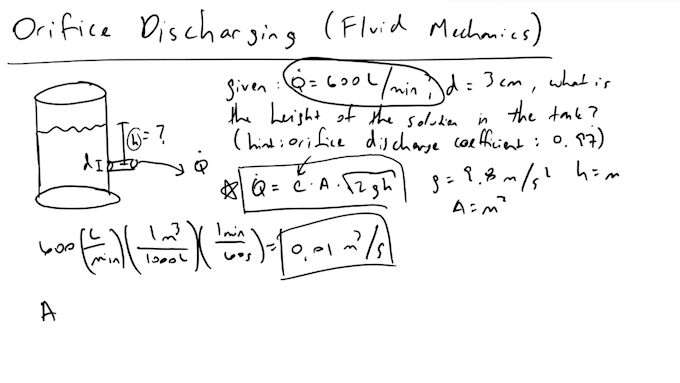 Orifice Discharging (Fluid Mechanics)
given: Q̇ = 600 L/min, d = 3 cm, what is
the height of the solution in the tank?
(hint: orifice discharge coefficient: 0.97)
h = ?
d
Q̇
☆ Q̇ = C · A · √2gh
g = 9.8 m/s² h = m
A = m²
600 (L/min) (1 m³/1000L) (1 min/60s) = 0.01 m³/s
A